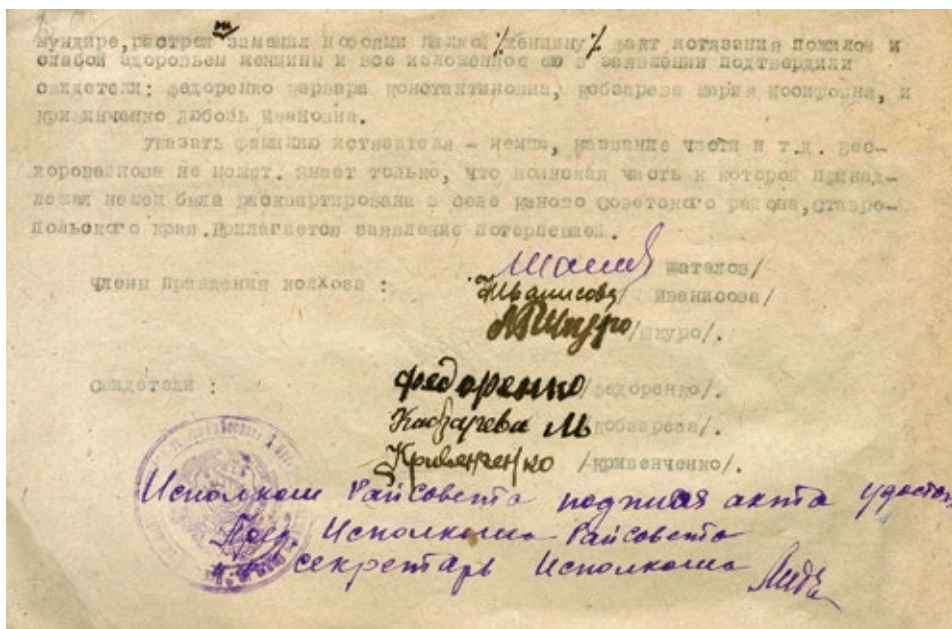 мундире, растрей заменил побоями палкой /женщину/. факт истязания пожилой и
слабой здоровьем женщины и все изложенное ею в заявлении подтвердили
свидетели: Федоренко Варвара Константиновна, Кобзарева Мария Иосифовна, и
Кривинченко Любовь Ивановна.
указать фамилию истязателя - немца, название части и т.д. Бес-
коровайнова не может. Знает только, что воинская часть к которой принад-
лежал немец была расквартирована в селе Каново Советского района, Ставро-
польского края. Прилагается заявление потерпевшей.
Шатал /Шаталов/
Члены Правления колхоза :
Иванисова /Иванисова/
Шкуро /Шкуро/.
Свидетели :
Федоренко /Федоренко/.
Кабзарева М /Кобзарева/.
Кривенченко /Кривенченко/.
Исполком Райсовета подписа акта удосто
Пред. Исполкома Райсовета
секретарь Исполкома